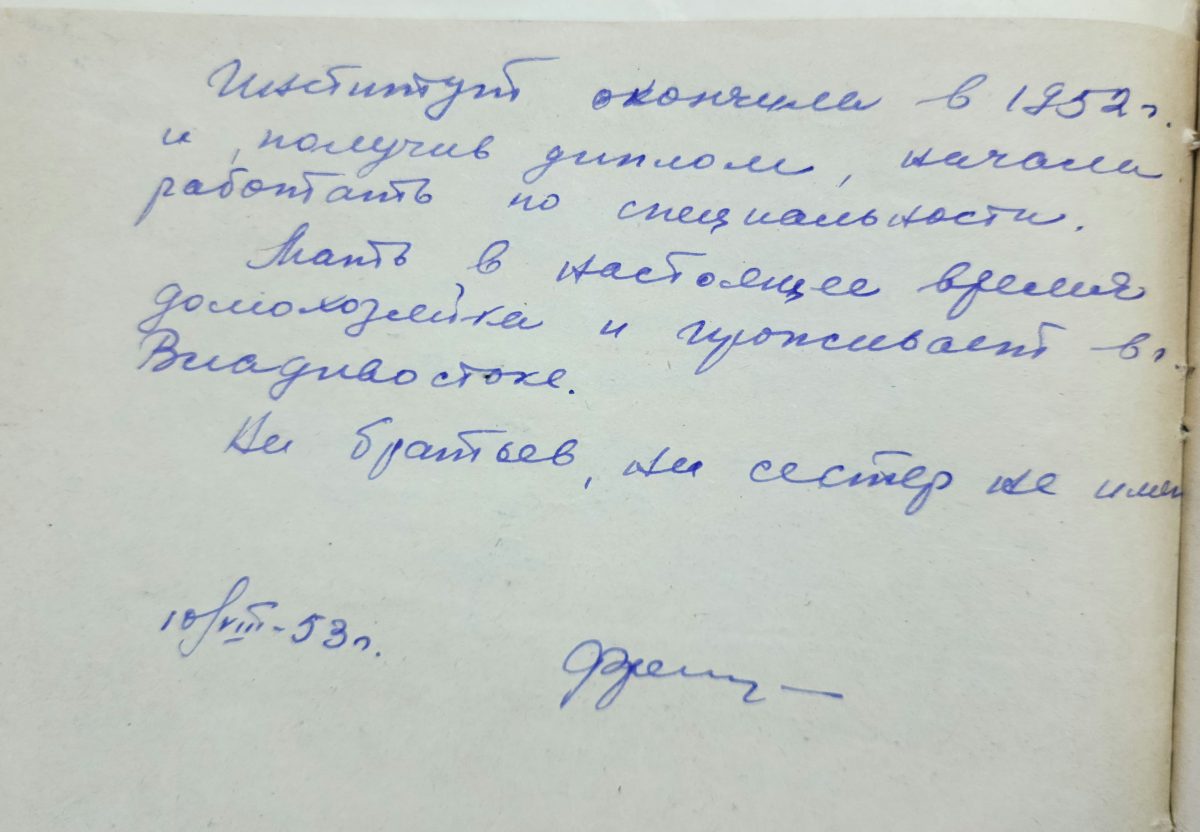 Институт окончила в 1952 г.
и, получив диплом, начала
работать по специальности.
Мать в настоящее время
домохозяйка и проживает в г.
Владивостоке.
Ни братьев, ни сестер не име
10/VIII-53 г.